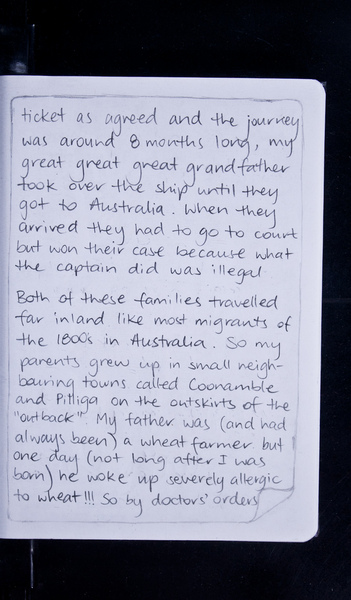 ticket as agreed and the journey
was around 8 months long, my
great great great grandfather
took over the ship until they
got to Australia. When they
arrived they had to go to court
but won their case because what
the captain did was illegal
Both of these families travelled
far inland like most migrants of
the 1800s in Australia. So my
parents grew up in small neigh-
bouring towns called Coonamble
and Pilliga on the outskirts of the
"outback". My father was (and had
always been) a wheat farmer but
one day (not long after I was
born) he woke up severely allergic
to wheat!!! So by doctors' orders